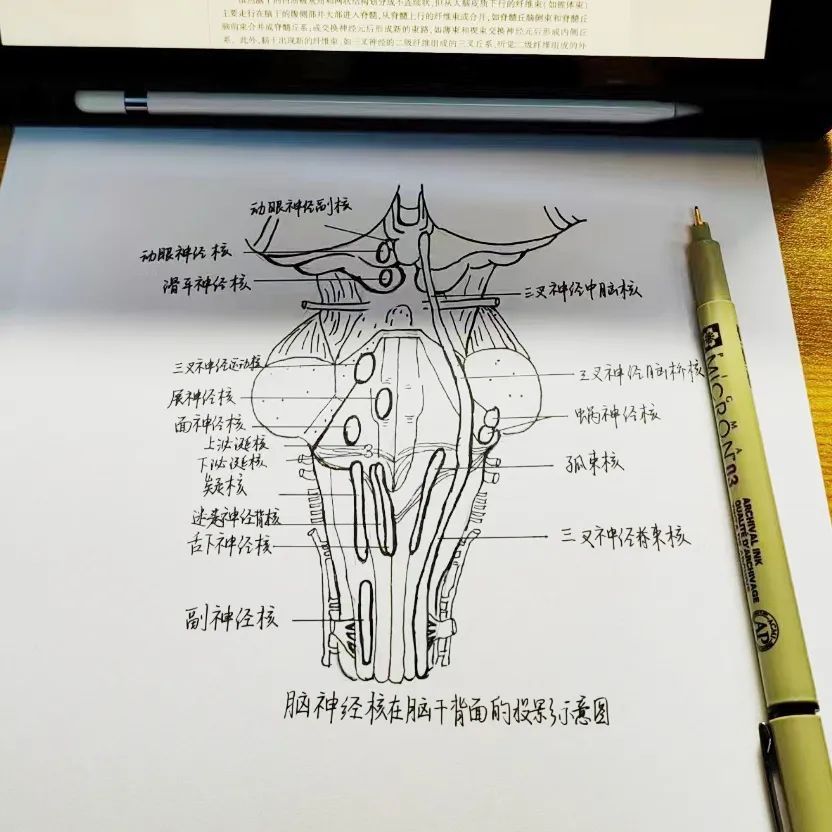 主要走行在脑干的腹侧部并大部进入脊髓,从脊髓上行的纤维束或合并,如脊髓丘脑侧束和脊髓丘
脑前束合并成脊髓丘系;或交换神经元后形成新的束路,如薄束和楔束交换神经元后形成内侧丘
系。此外,脑干出现新的纤维束,如三叉神经的二级纤维组成的三叉丘系,听觉二级纤维组成的外
动眼神经副核
动眼神经核
滑车神经核
三叉神经中脑核
三叉神经运动核
三叉神经脑桥核
展神经核
蜗神经核
面神经核
上泌涎核
下泌涎核
孤束核
疑核
迷走神经背核
舌下神经核
三叉神经脊束核
副神经核
脑神经核在脑干背面的投影示意图
MICRON 03
ARCHIVAL INK
QUALITÉ D'ARCHIVAGE
AP